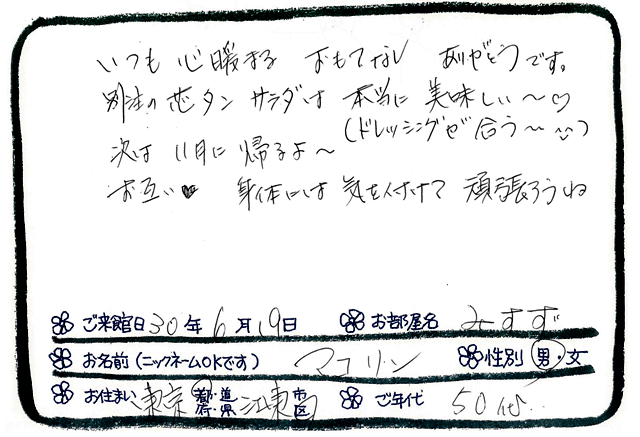 いつも 心暖まる おもてなし ありがとうです。
別注の 芯タン サラダは 本当に 美味しい〜♡
(ドレッシングが 合う〜)
次は 11月に 帰るよ〜
お互い♥ 身体には 気を付けて 頑張ろうね
ご来館日 30年 6月 19日 お部屋名 みすず
お名前(ニックネームOKです) マコリン 性別 男・女
お住まい 東京 都・道 府・県 江東 市 区 ご年代 50代